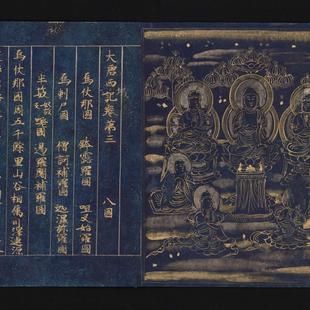 大唐西域記卷第三 八國
烏仗那國 鉢露羅國 呾叉始羅國
烏剌尸國 僧訶補羅國 迦濕弥羅國
半 嗟國 曷羅闍補羅國
烏仗那國周五千餘里山谷相属川澤連原